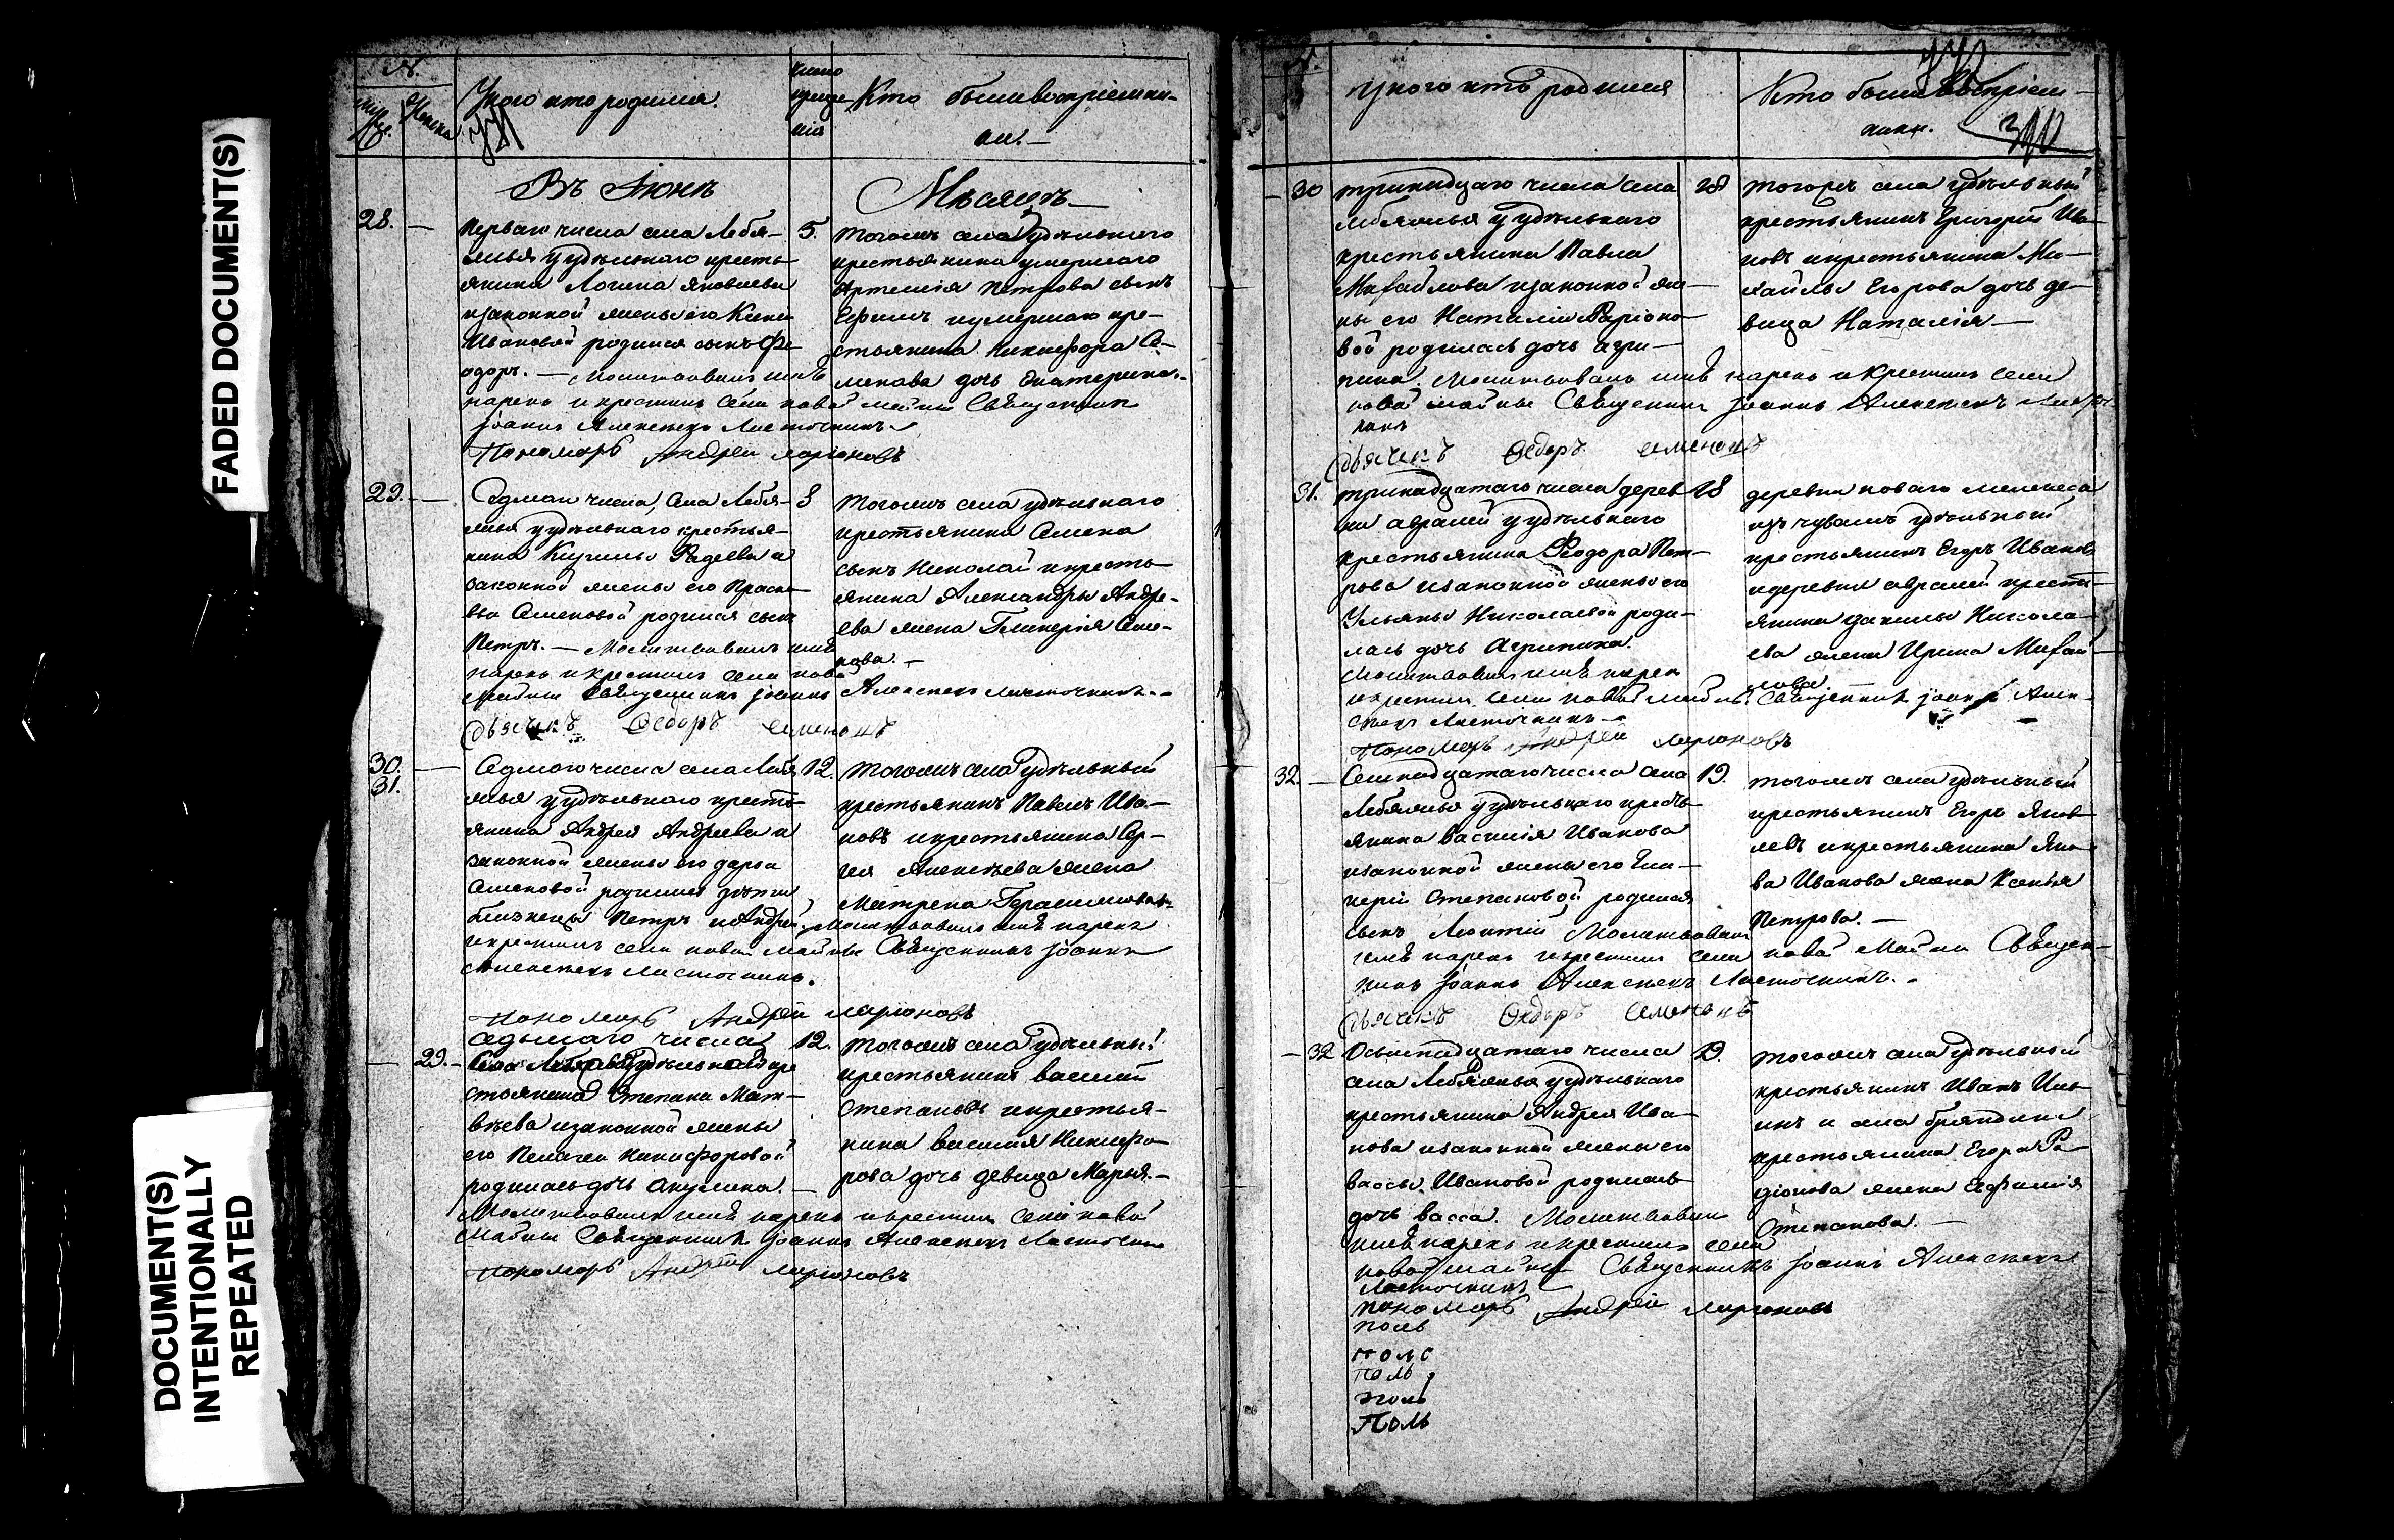 FADED DOCUMENT(S)
DOCUMENT(S)
INTENTIONALLY
REPEATED
№.
У кого кто родился.
число
крще
нія
Кто были воспріемни-
ки.—
Въ Іюнѣ Мѣсяцѣ—
28. —
Перваго числа села Лебя-
жья у удѣльнаго кресть-
янина Логина Яковлева
и законной жены его
Ивановой родился сынъ Фе-
одоръ. — Молитвовалъ имѣ
нарекъ и крестилъ села новой майны Священникъ
Іоаннъ Алексѣевъ Ласточкинъ
Пономарь Андрей Ларіоновъ
5.
тогожъ села удѣльнаго
крестьянина умершаго
Артемія Петрова сынъ
Ефимъ и умершаго кре-
стьянина Никифора Се-
менова дочь Екатерина.
29. —
Седмаго числа, села Лебя-
жья у удѣльнаго крестья-
нина Кузьмы Фадеева и
законной жены его Праско-
вьи Семеновой родился сынъ
Петръ. — Молитвовалъ имѣ
нарекъ и крестилъ села новой
Майны Священникъ Іоаннъ Алексѣевъ Ласточкинъ.
дьячекъ Ѳедоръ Семеновъ
8
тогожъ села удѣльнаго
крестьянина Семена
сынъ Николай и кресть-
янина Александра Андре-
ева жена Гликерія Семе-
нова. —
30.
31.
Седмаго числа села Лебя-
жья у удѣльнаго кресть-
янина Андрея Андреева и
законной жены его Дарьи
Семеновой родились дѣти
близнецы Петръ и Андрей. Молитвовалъ имѣ нарекъ
и крестилъ села новой Майны Священникъ Іоаннъ
Алексѣевъ Ласточкинъ.
Пономарь Андрей Ларіоновъ
12.
тогожъ села удѣльный
крестьянинъ Павелъ Ива-
новъ и крестьянина Сер-
гея Алексѣева жена
Матрена Герасимова.
— 29. —
седьмаго числа
села Лебяжья у удѣльнаго кре
стьянина Степана Мат-
вѣева и законной жены
его Пелагеи Никифоровой
родилась дочь Акулина. —
Молитвовалъ имѣ нарекъ и крестилъ села новой
Майны Священникъ Іоаннъ Алексѣевъ Ласточкинъ
Пономарь Андрей Ларіоновъ
12.
тогожъ села удѣльный
крестьянинъ Василій
Степановъ и крестья-
нина Василія Никифо-
рова дочь девица Марья.—
У кого кто родился
Кто были воспріем-
ники.
— 30
тринадцаго числа села
Лебяжья у удѣльнаго
крестьянина Павла
Михайлова и законной же-
ны его Наталіи Ларіоно-
вой родилась дочь Агри-
пина. Молитвовалъ имѣ нарекъ и крестилъ села
новой майны Священникъ Іоаннъ Алексѣевъ Ласточ-
кинъ
дьячекъ Ѳедоръ Семеновъ
тогожъ села удѣльный
крестьянинъ Григорій Ива-
новъ и крестьянина Ми-
хайлы Егорова дочь де-
вица Наталія —
31.
тринадцатаго числа дерев-
ни Авралей у удѣльнаго
крестьянина Ѳеодора Пет-
рова и законной жены его
Ульяны Николаевой роди-
лась дочь Агрипина.
Молитвовалъ имѣ нарекъ
и крестилъ села новой майны Священникъ Іоаннъ Алек-
сѣевъ Ласточкинъ —
Пономарь Андрей Ларіоновъ
18
деревни новаго мелекеса
изъ чувашъ удѣльный
крестьянинъ Егоръ Ивановъ
и деревни Авралей кресть-
янина Николa-
ева жена Ирина Михай-
лова
32. —
Семнадцатаго числа села
Лебяжья у удѣльнаго кресть-
янина Василія Иванова
и законной жены его Гли-
керіи Степановой родился
сынъ Леонтій Молитвовалъ
имѣ нарекъ и крестилъ села новой Майны Священ-
никъ Іоаннъ Алексѣевъ Ласточкинъ.
дьячекъ Ѳедоръ Семеновъ
19.
тогожъ села удѣльный
крестьянинъ Егоръ Яков-
левъ и крестьянина Яко-
ва Иванова жена Ксенья
Петрова. —
— 32
Осьмнадцатаго числа
села Лебяжья у удѣльнаго
крестьянина Андрея Ива-
нова и законной жены его
Вассы Ивановой родилась
дочь Васса. Молитвовалъ
имѣ нарекъ и крестилъ села
новой майны Священникъ Іоаннъ Алексѣевъ
Ласточкинъ
пономарь Андрей Ларіоновъ
тогожъ села удѣльной
крестьянинъ Иванъ Иль-
инъ и села Бряндина
крестьянина Егора Ра-
діонова жена Евфимія
Степанова. —
поль
поль
поль
поль
Поль